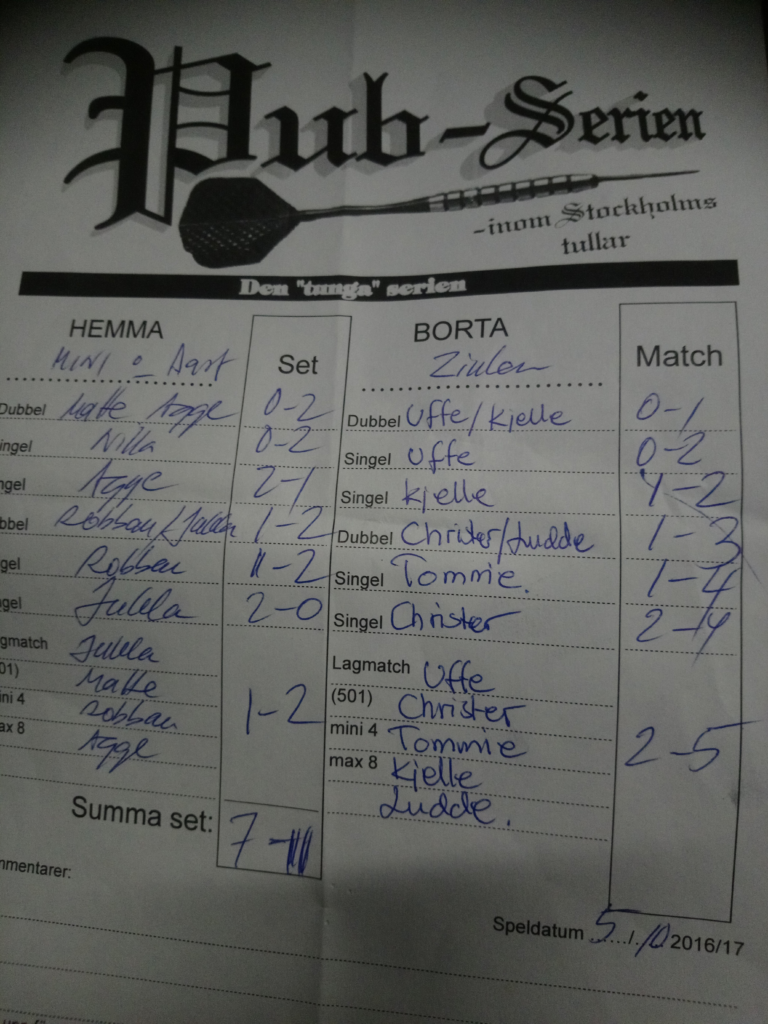 Pub-Serien
-inom Stockholms
tullar
Den "tunga" serien
HEMMA Set BORTA Match
MINI o Dart Zinken
Dubbel Matte Agge 0-2 Dubbel Uffe/Kjelle 0-1
ingel Nilla 0-2 Singel Uffe 0-2
ngel Agge 2-1 Singel Kjelle 1-2
bbel Robban/Jukka 1-2 Dubbel Christer/Ludde 1-3
gel Robban 1-2 Singel Tommie. 1-4
gel Jukka 2-0 Singel Christer 2-4
gmatch Jukka Lagmatch Uffe
01) Matte 1-2 (501) Christer 2-5
ini 4 Robban mini 4 Tommie
ax 8 Agge max 8 Kjelle
Ludde.
Summa set: 7-11
mmentarer:
Speldatum 5 / 10 2016/17